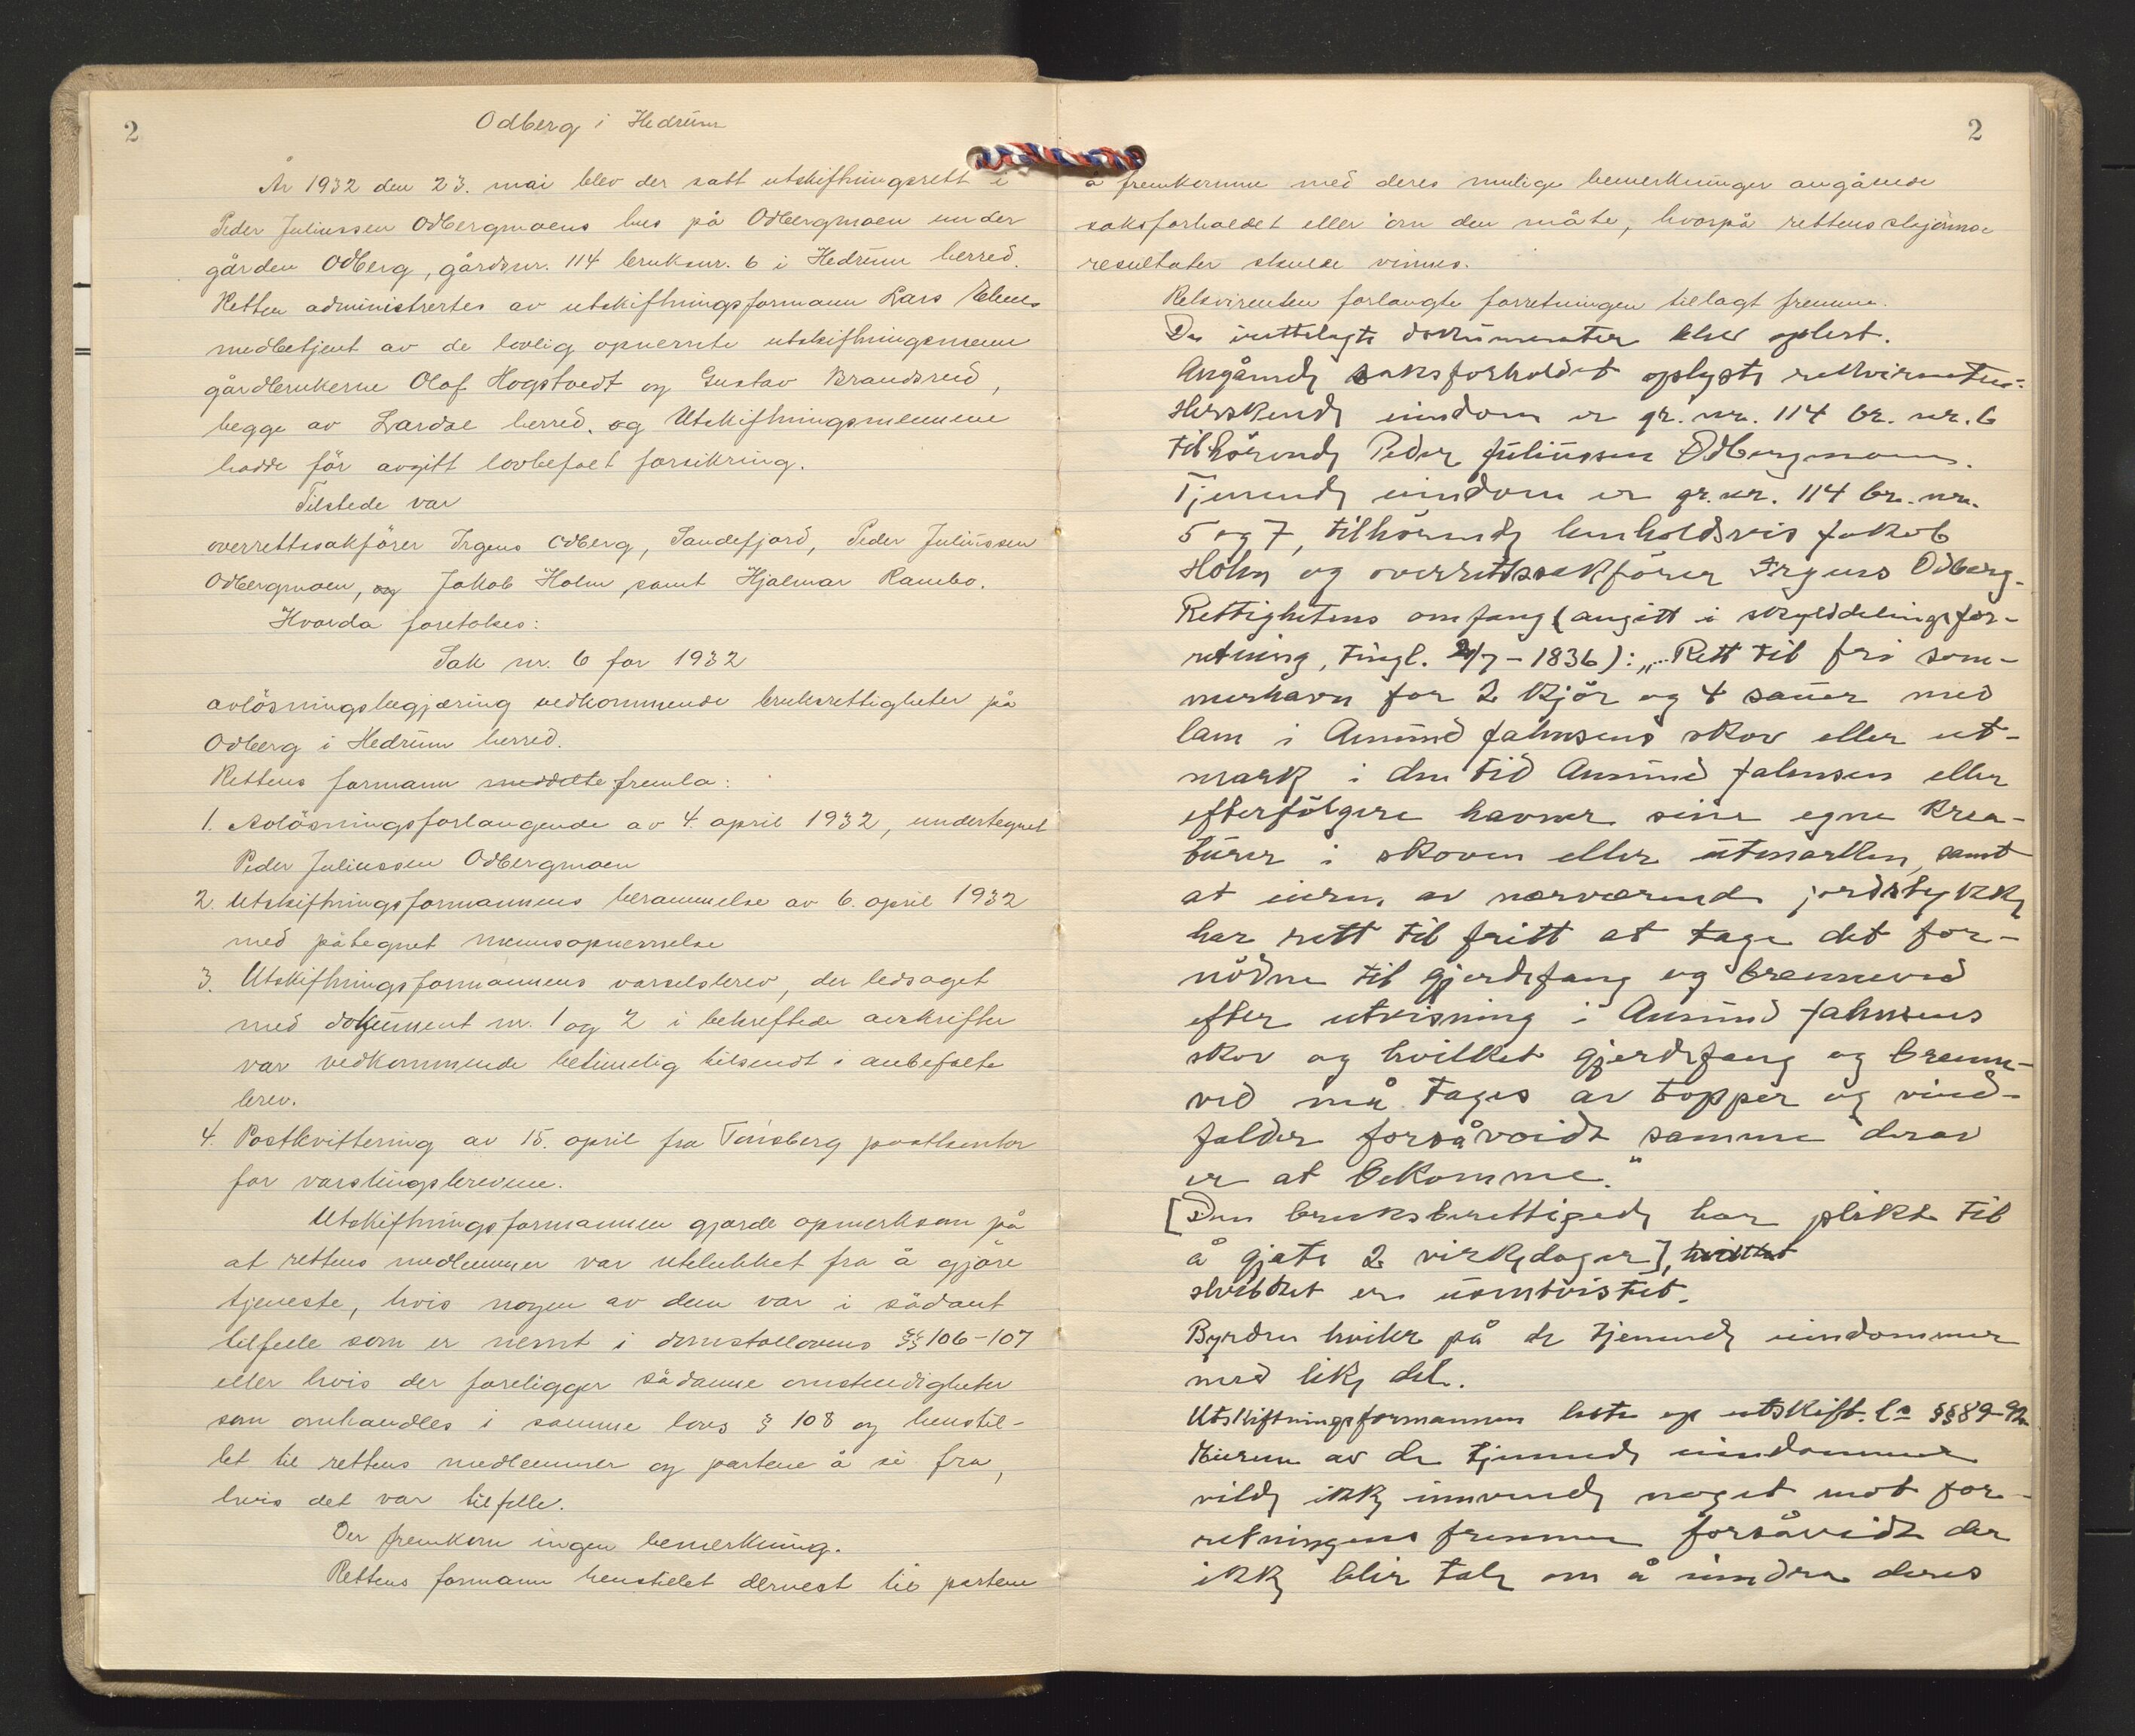 2
Odberg i Hedrum
År 1932 den 23. mai blev der satt utskiftningsrett i
Peder Juliussen Odbergmoens hus på Odbergmoen under
gården Odberg, gårdsnr. 114 bruksnr. 6 i Hedrum herred.
Retten administrertes av utskiftningsformann Lars
medbetjent av de lovlig opnevnte utskiftningsmenn
gårdbrukerne Olaf Hogstvedt og Gustav Brandsrud,
begge av Lardal herred. og Utskiftningsmennene
hadde før avgitt lovbefalt forsikring.
Tilstede var
overrettssakfører Irgens Odberg, Sandefjord, Peder Juliussen
Odbergmoen, og Jakob Holm samt Hjalmar Rambo.
Hvorda foretokes:
Sak nr. 6 for 1932
avløsningsbegjæring vedkommende bruksrettigheter på
Odberg i Hedrum herred.
Rettens formann meddelte fremla:
1. Avløsningsforlangende av 4. april 1932, undertegnet
Peder Juliussen Odbergmoen
2. Utskiftningsformannens berammelse av 6. april 1932
med påtegnet mennsopnevnelse
3. Utskiftningsformannens varselsbrev, der ledsaget
med dokument nr. 1 og 2 i bekreftede avskrifter
var vedkommende betimelig tilsendt i anbefalte
brev.
4. Postkvittering av 15. april fra Tønsberg postkontor
for varslingsbrevene.
Utskiftningsformannen gjorde opmerksom på
at rettens medlemmer var utelukket fra å gjøre
tjeneste, hvis nogen av dem var i sådant
tilfelle som er nevnt i domstollovens §§ 106-107
eller hvis der foreligger sådanne omstendigheter
som omhandles i samme lovs § 108 og henstil-
let til rettens medlemmer og partene å si fra,
hvis det var tilfelle.
Der fremkom ingen bemerkning.
Rettens formann henstillet dernest til partene
2
å fremkomme med deres mulige bemerkninger angående
saksforholdet eller om den måte, hvorpå rettens skjønns
resultater skulde vinnes.
Rekvirenten forlangte forretningen tillagt fremme.
De innlagte dokumenter blev oplest.
Angående saksforholdet oplyste rekvirenten:
Herskende eiendom er gr. nr. 114 br. nr. 6
tilhørende Peder Juliussen Odbergmoen.
Tjenende eiendom er gr. nr. 114 br. nr.
5 og 7, tilhørende henholdsvis Jakob
Holm og overrettssakfører Irgens Odberg.
Rettighetens omfang (angitt i skylddelingsfor-
retning, tingl. 2/7 - 1836): „... Rett til fri som-
merhavn for 2 kjør og 4 sauer med
lam i Amund Jahnsens skov eller ut-
mark i den tid Amund Jahnsen eller
efterfølgere havner sine egne krea-
turer i skoven eller utmarken, samt
at eieren av nærværende jordstykke
har rett til fritt at tage det for-
nødne til gjerdefang og brenneved
efter utvisning i Amund Jahnsens
skov og hvilket gjerdefang og brenne-
ved må tages av topper og vind-
falder forsåvidt samme derav
er at bekomme."
[Den bruksberettigede har plikt til
å gjete 2 virkedager], hvilket
er uomtvistet.
Byrden hviler på de tjenende eiendommer
med like del.
Utskiftningsformannen leste op utskift. l. §§ 89-92
Eieren av de tjenende eiendommer
vilde ikke innvende noget mot for-
retningens fremme forsåvidt der
ikke blir tale om å inndra deres